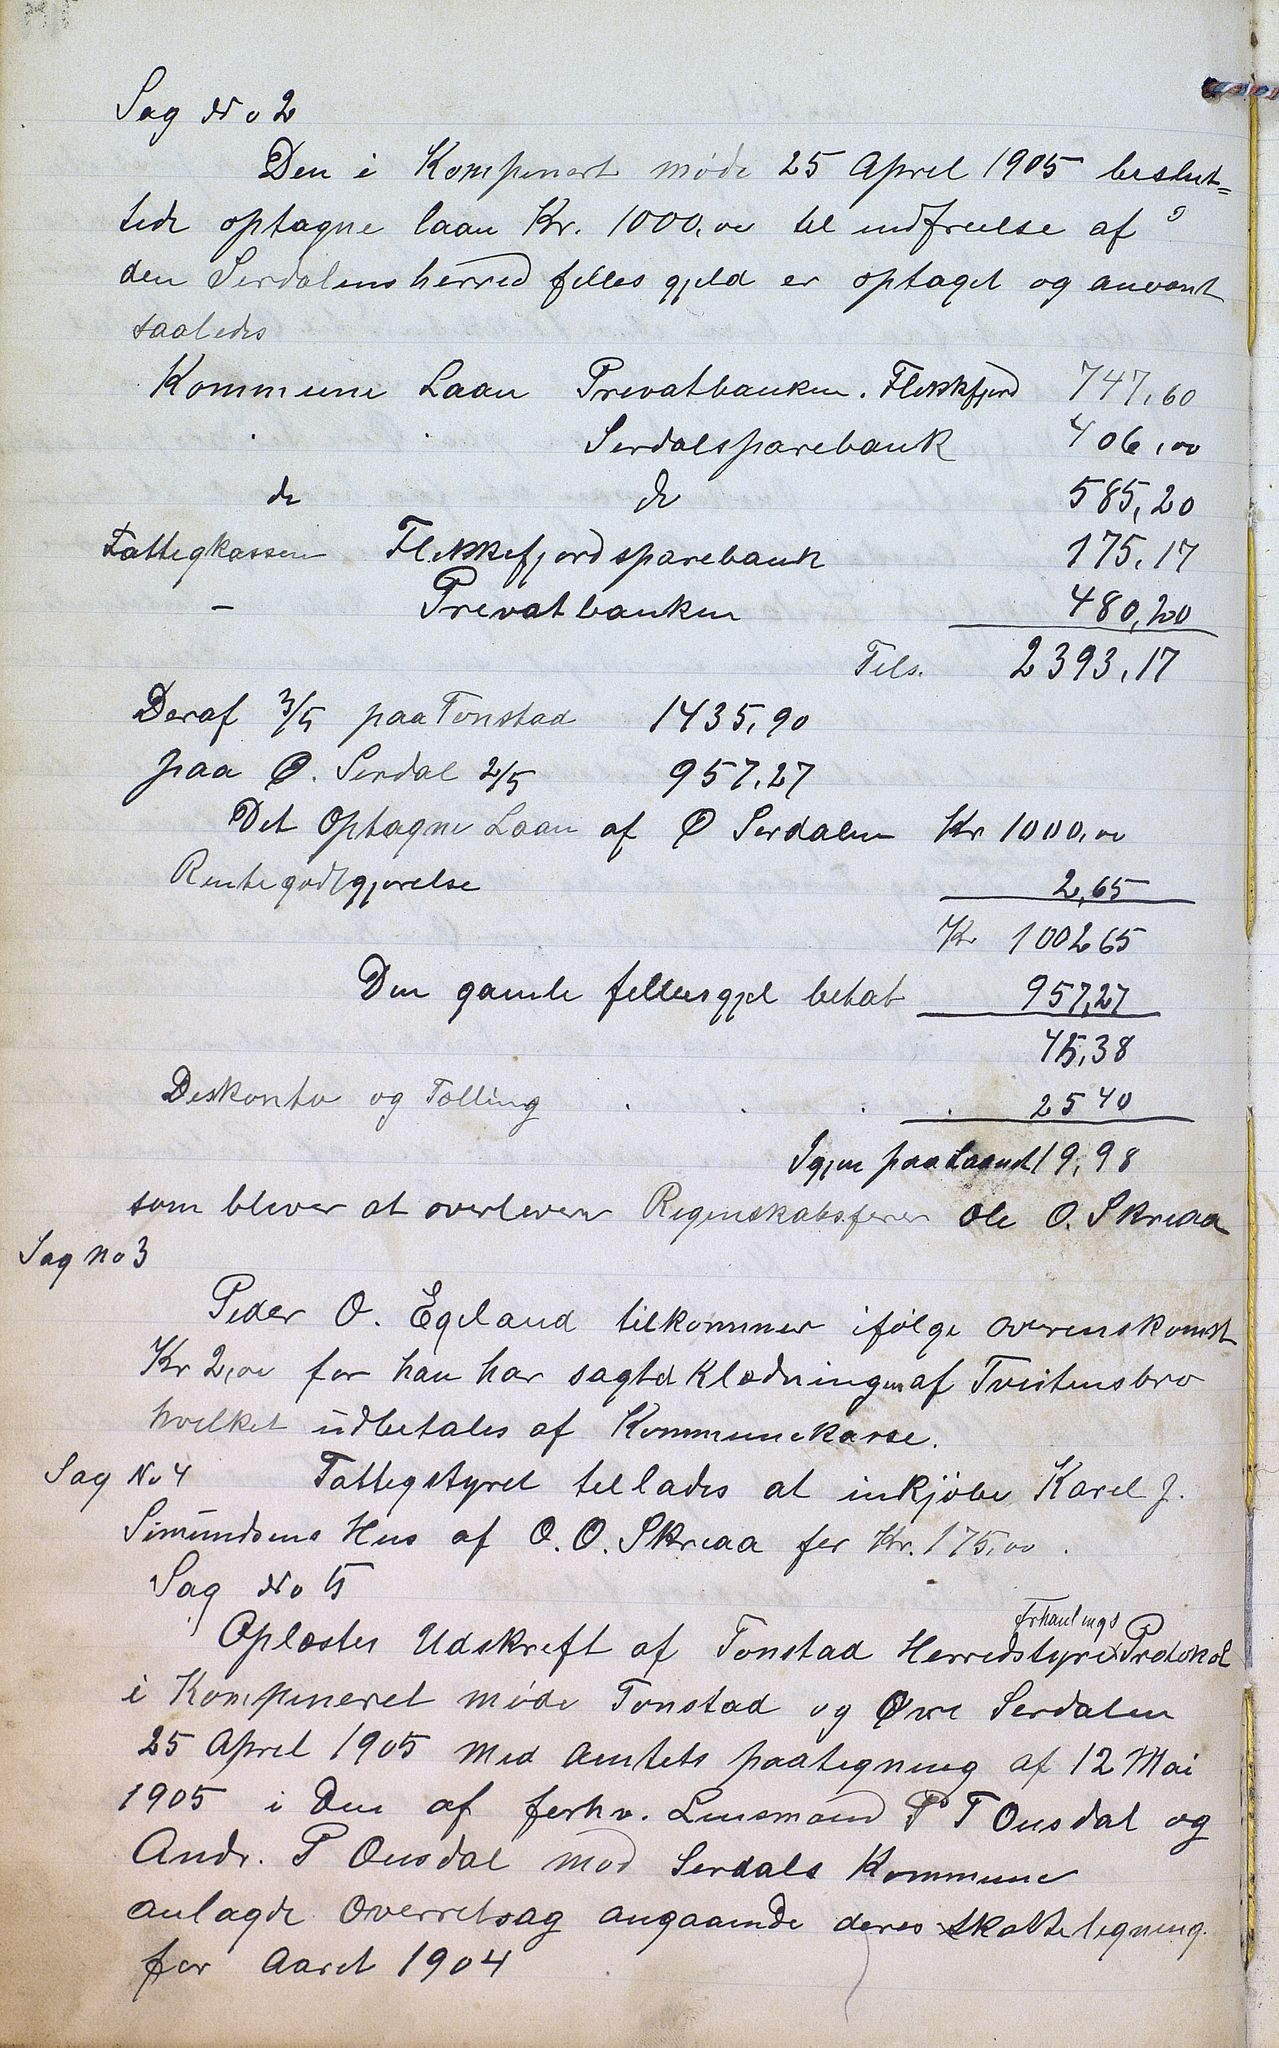 Sag No 2
Den i Kompinert møde 25 April 1905 beslut=
tede optagne laan Kr. 1000,00 til indfrielse af
den Serdalens herred felles gjeld er optaget og anvent
saaledes
Kommune Laan Prevatbanken. Flekkefjord 747,60
Serdalsparebank 406,00
do do 585,20
Fattigkassen Flekkefjordsparebank 175,17
– Prevatbanken 480,20
Tils. 2393,17
Deraf 3/5 paa Tonstad 1435,90
paa Ø. Serdal 2/5 957,27
Det Optagne Laan af Ø Serdalen Kr 1000,00
Rentegodtgjørelse 2,65
Kr 1002 65
Den gamle fellesgjel betalt 957,27
45,38
Deskonto og Tælling . . . . 25 40
Igjen paa Laanet 19,98
som bliver at overlevere Regenskabsfører Ole O. Skreaa
Sag No 3
Peder O. Egeland tilkommer ifølge overenskomst
Kr 2,00 for han har sagtet Klædningen af Tveitensbro
hvilket udbetales af Kommunekasse.
Sag No 4 Fattigstyret tellades at inkjøbe Karel J.
Simundsens Hus af O. O. Skreaa for Kr. 175,00.
Sag No 5
Oplæstes Udskreft af Tonstad Herredstyres Forhanlings Protokol
i Kompineret møde Tonstad og Øvre Serdalen
25 April 1905 med Amtets paategning af 12 Mai
1905 i Den af forhv. Lensmand P T Ousdal og
Andr. P Ousdal mod Serdals Kommune
anlagde Overretsag angaaende deres skatteligning
for Aaret 1904